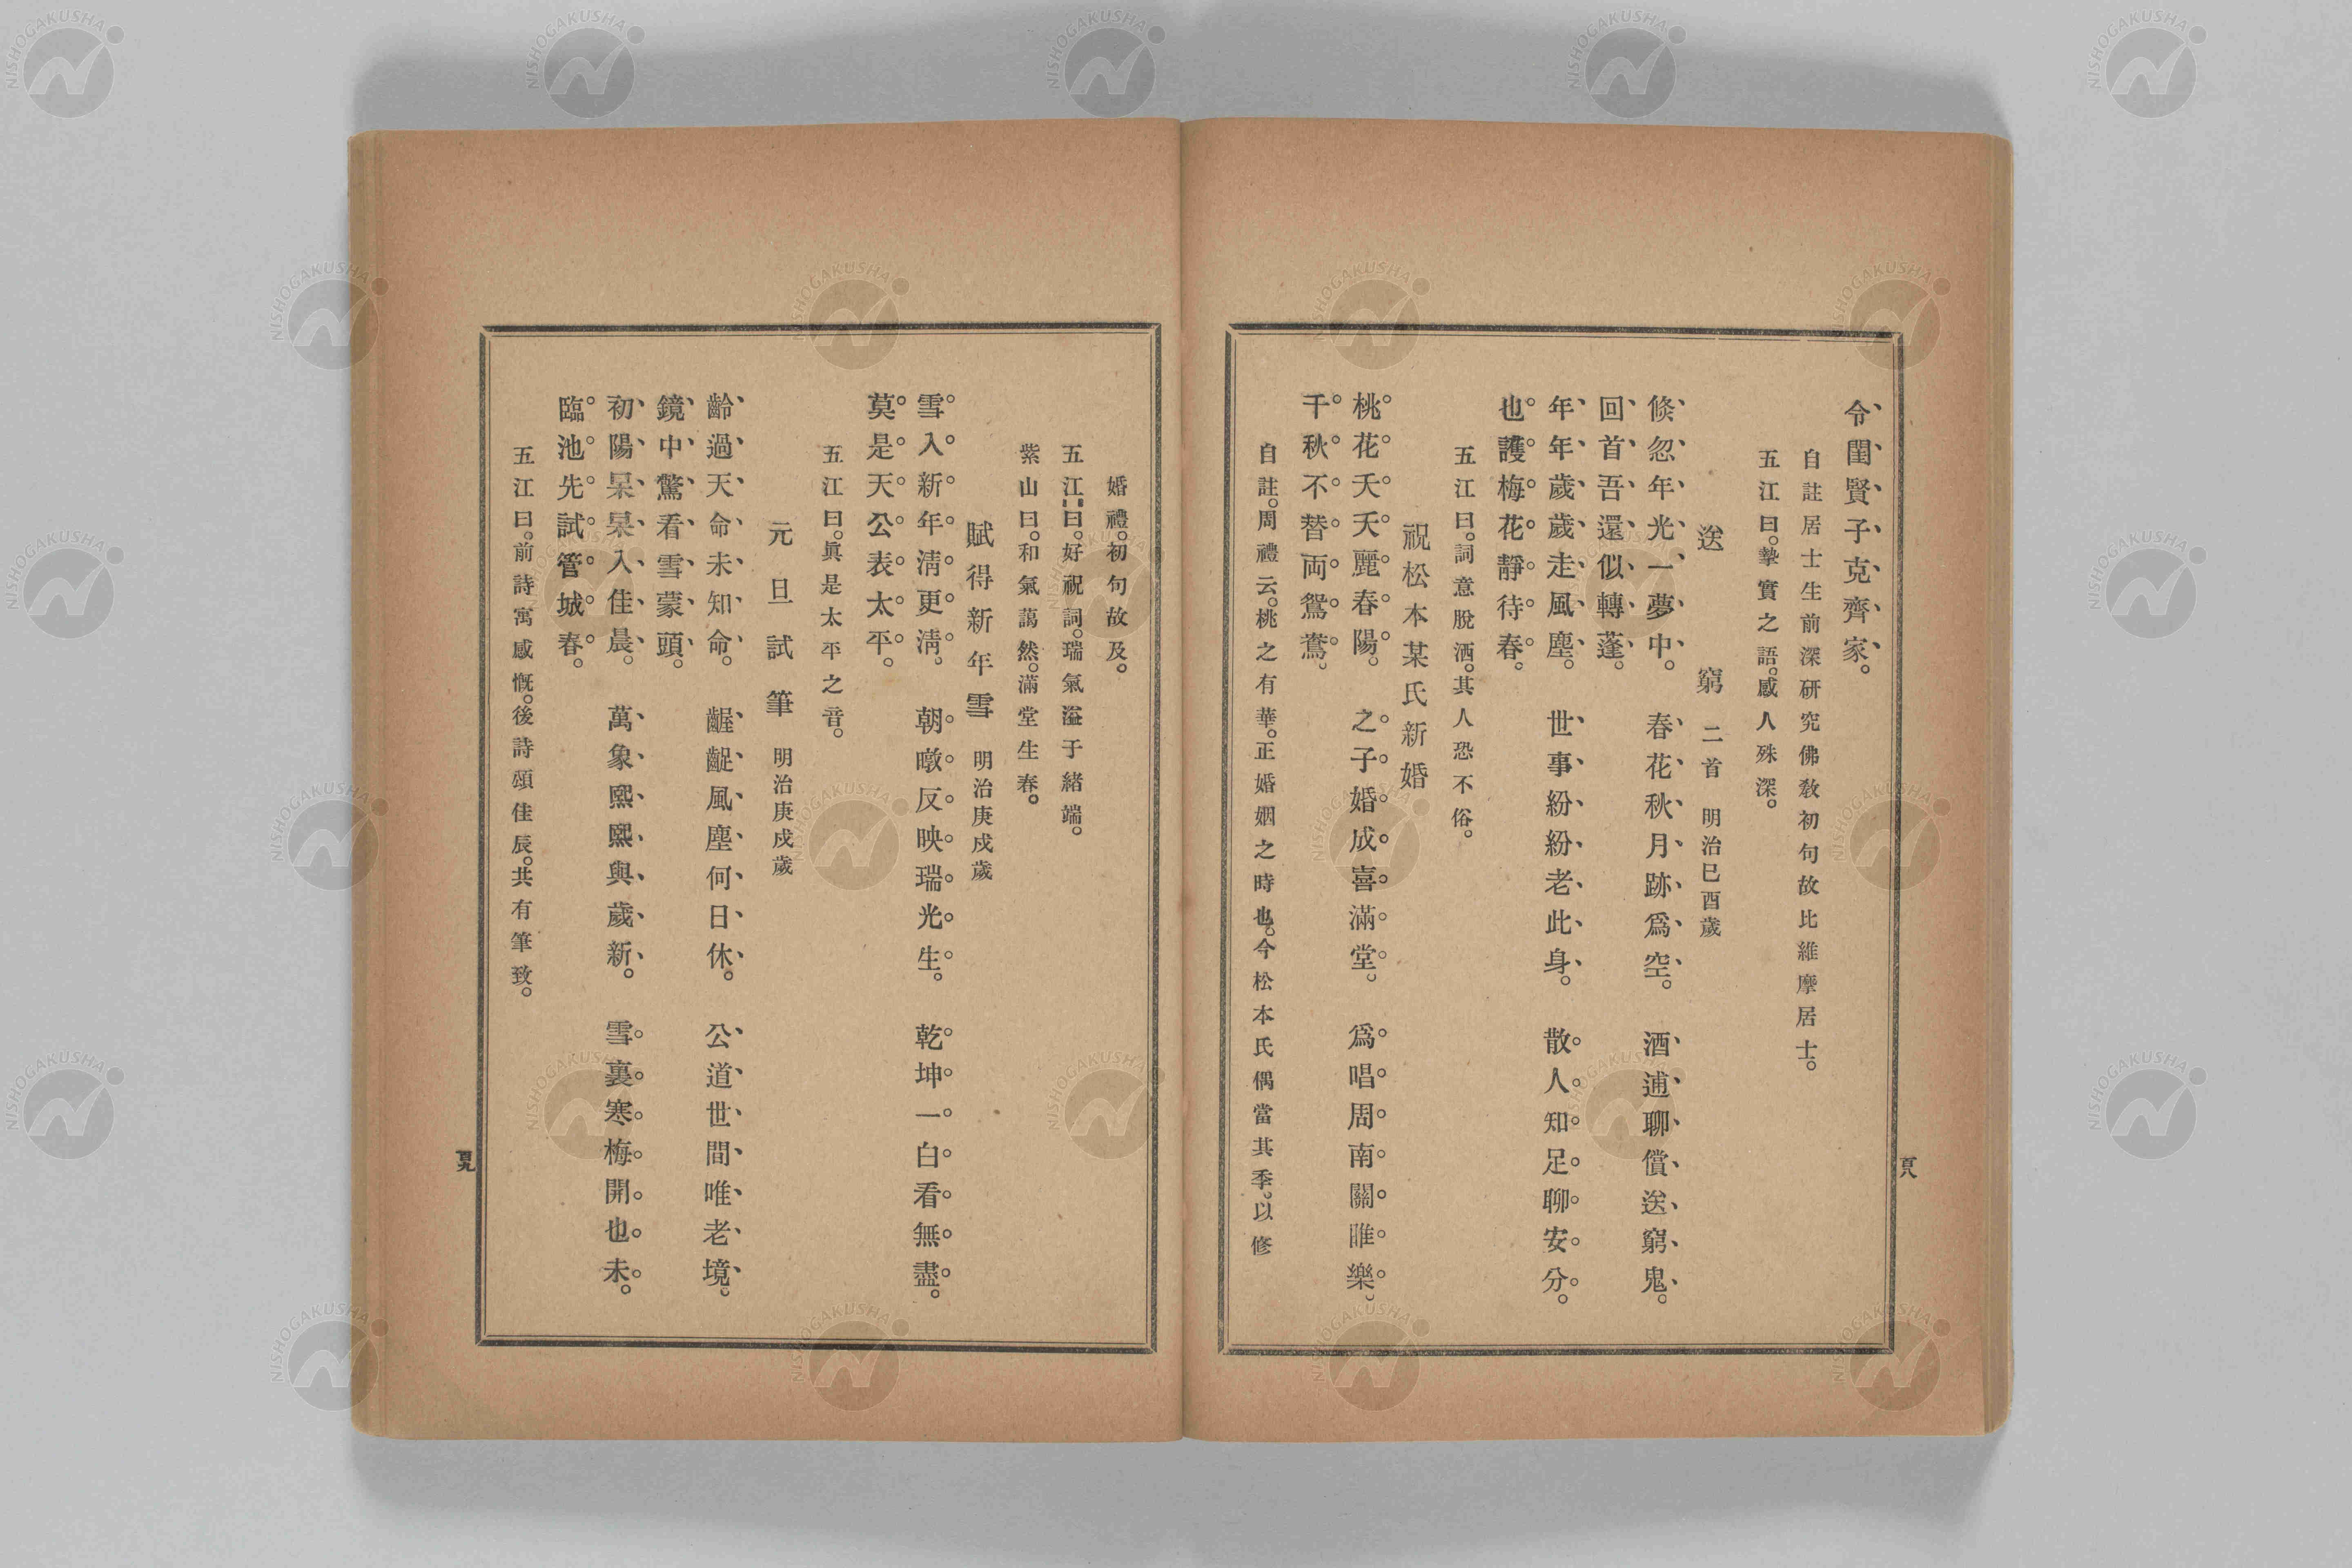 令閨賢子克齊家。
自註居士生前深研究佛敎初句故比維摩居士。
五江曰。摯實之語。感人殊深。
送窮 二首 明治巳酉歲
倐忽年光一夢中。 春花秋月跡爲空。 酒逋聊償送窮鬼。
回首吾還似轉蓬。
年年歲歲走風塵。 世事紛紛老此身。 散人知足聊安分。
也護梅花靜待春。
五江曰。詞意脫洒。其人恐不俗。
祝松本某氏新婚
桃花夭夭麗春陽。 之子婚成喜滿堂。 爲唱周南關雎樂。
千秋不替両鴛鴦。
自註。周禮云。桃之有華。正婚姻之時也。今松本氏偶當其季。以修
百八
婚禮。初句故及。
五江曰。好祝詞。瑞氣溢于緒端。
紫山曰。和氣藹然。滿堂生春。
賦得新年雪 明治庚戍歲
雪入新年淸更淸。 朝暾反映瑞光生。 乾坤一白看無盡。
莫是天公表太平。
五江曰。眞是太平之音。
元旦試筆 明治庚戍歲
齡過天命未知命。 齷齪風塵何日休。 公道世間唯老境。
鏡中驚看雪蒙頭。
初陽杲杲入佳晨。 萬象熙熙與歲新。 雪裏寒梅開也未。
臨池先試管城春。
五江曰。前詩寓感慨。後詩頌佳辰。共有筆致。
百九
NISHOGAKUSHA